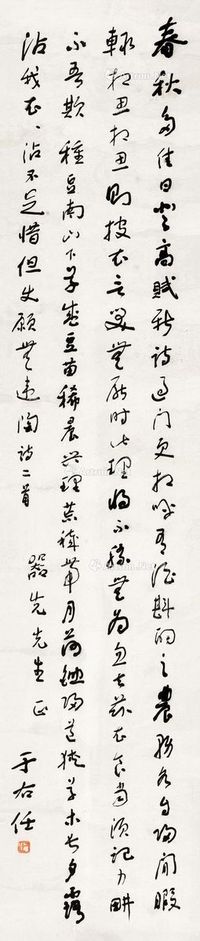 春秋多佳日登高賦新詩過門更相呼有酒斟酌之農務各自歸閒暇
輒相思相思則披衣言笑無厭時此理將不勝無為忽去茲衣食當須記力耕
不吾欺 種豆南山下草盛豆苗稀晨興理荒穢帶月荷鋤歸道狹草木長夕露
沾我衣、沾不足惜但使願無違陶詩二首
器先先生正
于右任